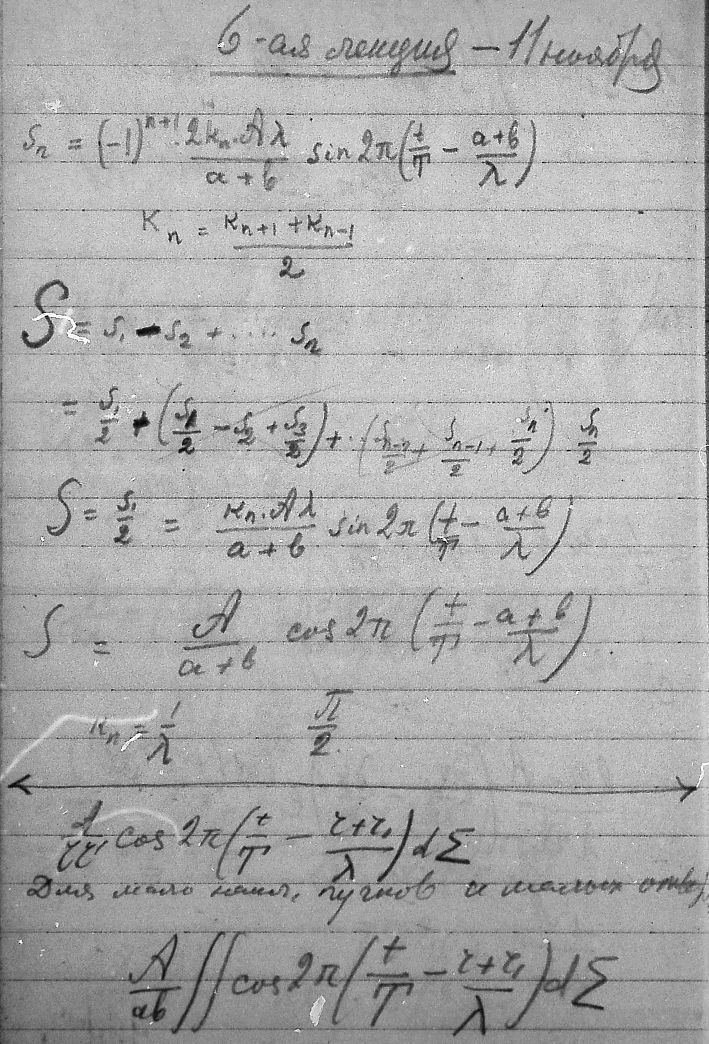 6-ая лекция – 11 ноября
Sₙ = (-1)ⁿ⁺¹ · 2кₙ·Aλ/(a+b) sin 2π(t/T – (a+b)/λ)
Кₙ = (Кₙ₊₁ + Кₙ₋₁)/2
S = S₁ – S₂ + .... Sₙ
= S₁/2 + (S₁/2 – S₂ + S₃/2) + ·(Sₙ₋₂/2 + Sₙ₋₁/2 + Sₙ/2) Sₙ/2
S = S₁/2 = кₙ·Aλ/(a+b) sin 2π(t/T – (a+b)/λ)
S = A/(a+b) cos 2π(t/T – (a+b)/λ)
кₙ = 1/λ π/2
A/(rr₁) cos 2π(t/T – (r+r₁)/λ) dΣ
Для мало накл. пучков и малых отвер.
A/ab ∬ cos 2π(t/T – (r+r₁)/λ) dΣ